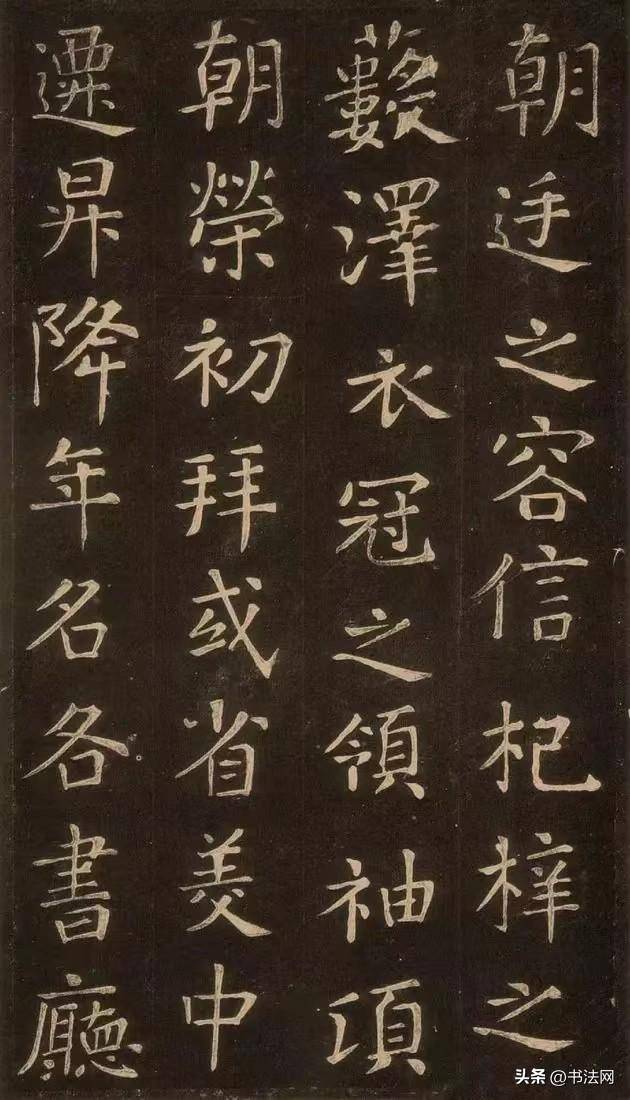 朝廷之容信杞梓之
藪澤衣冠之領袖頃
朝榮初拜或省美中
遷昇降年名各書廳
头条 @书法网